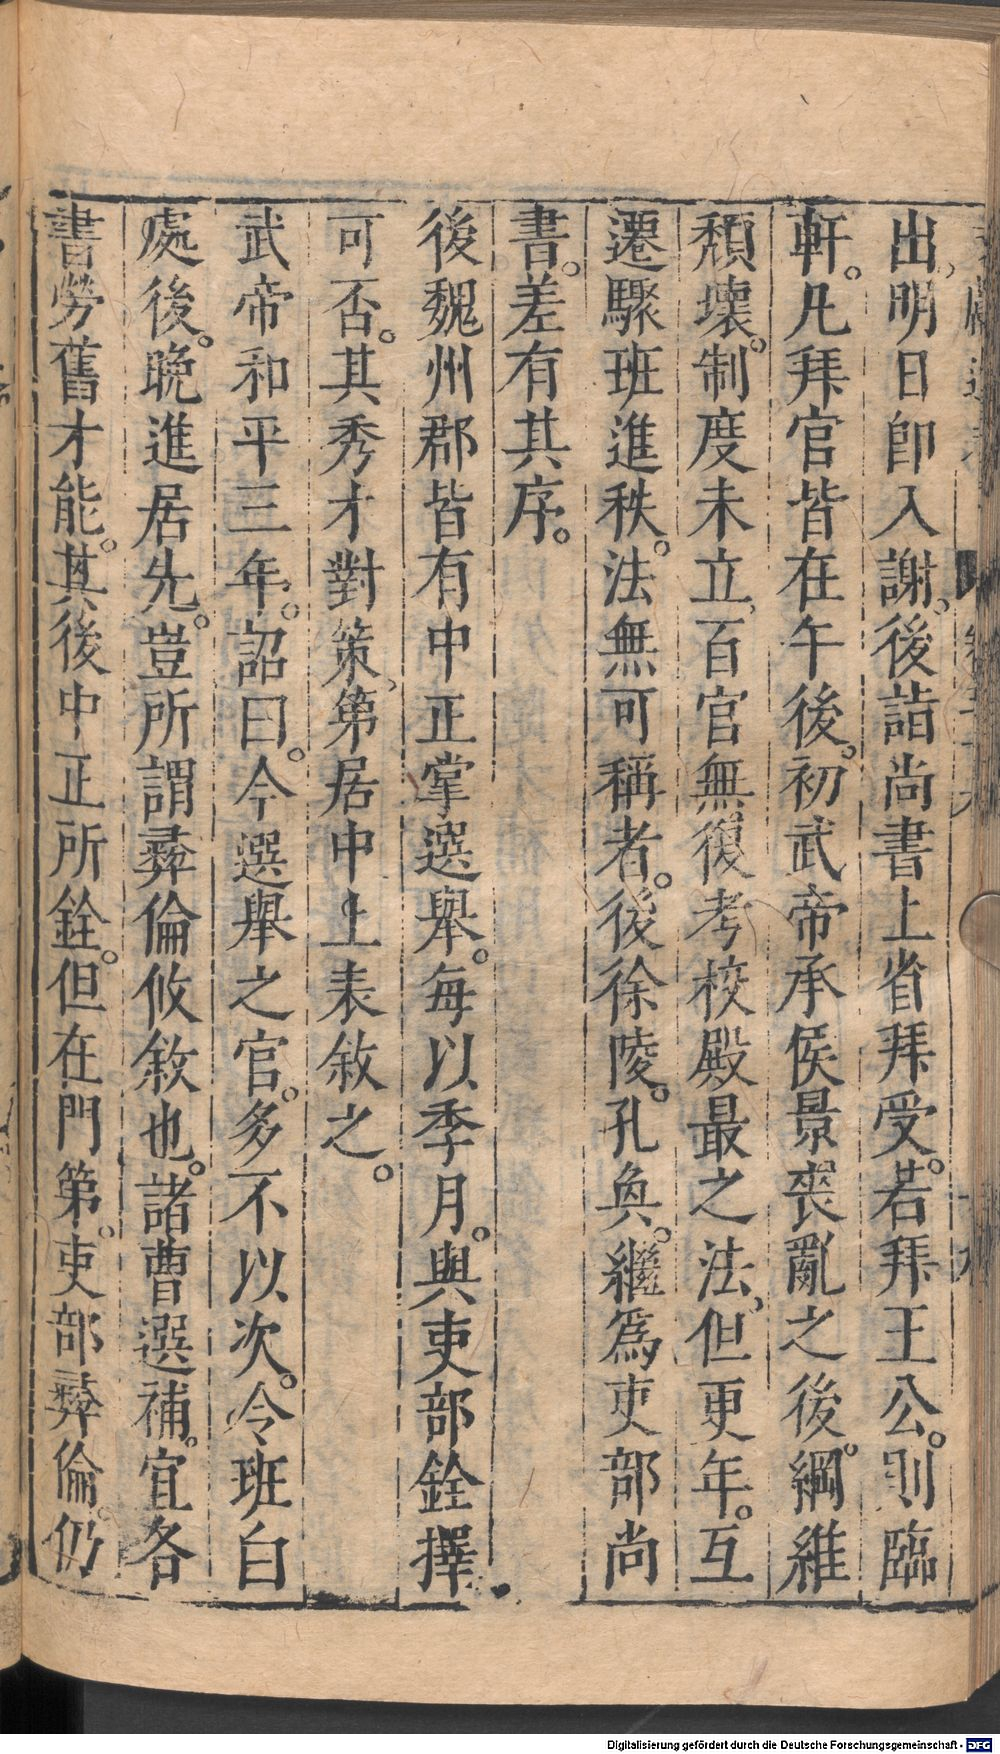 出、明日即入謝。後詣尚書上省拜受。若拜王公。則臨
軒。凡拜官皆在午後。初武帝承侯景喪亂之後。綱維
頹壞。制度未立、百官無復考校殿最之法、但更年。互
遷驟班進秩。法無可稱者。後徐陵。孔奐。繼爲吏部尚
書。差有其序。
後魏州郡皆有中正掌選舉。每以季月。與吏部銓擇
可否。其秀才對策、第居中上表敘之。
武帝和平三年。詔曰。今選舉之官。多不以次。令班白
處後。晚進居先。豈所謂彝倫攸敘也。諸曹選補。宜各
書勞舊才能。其後中正所銓。但在門第。吏部彝倫。仍
Digitalisierung gefördert durch die Deutsche Forschungsgemeinschaft - DFG